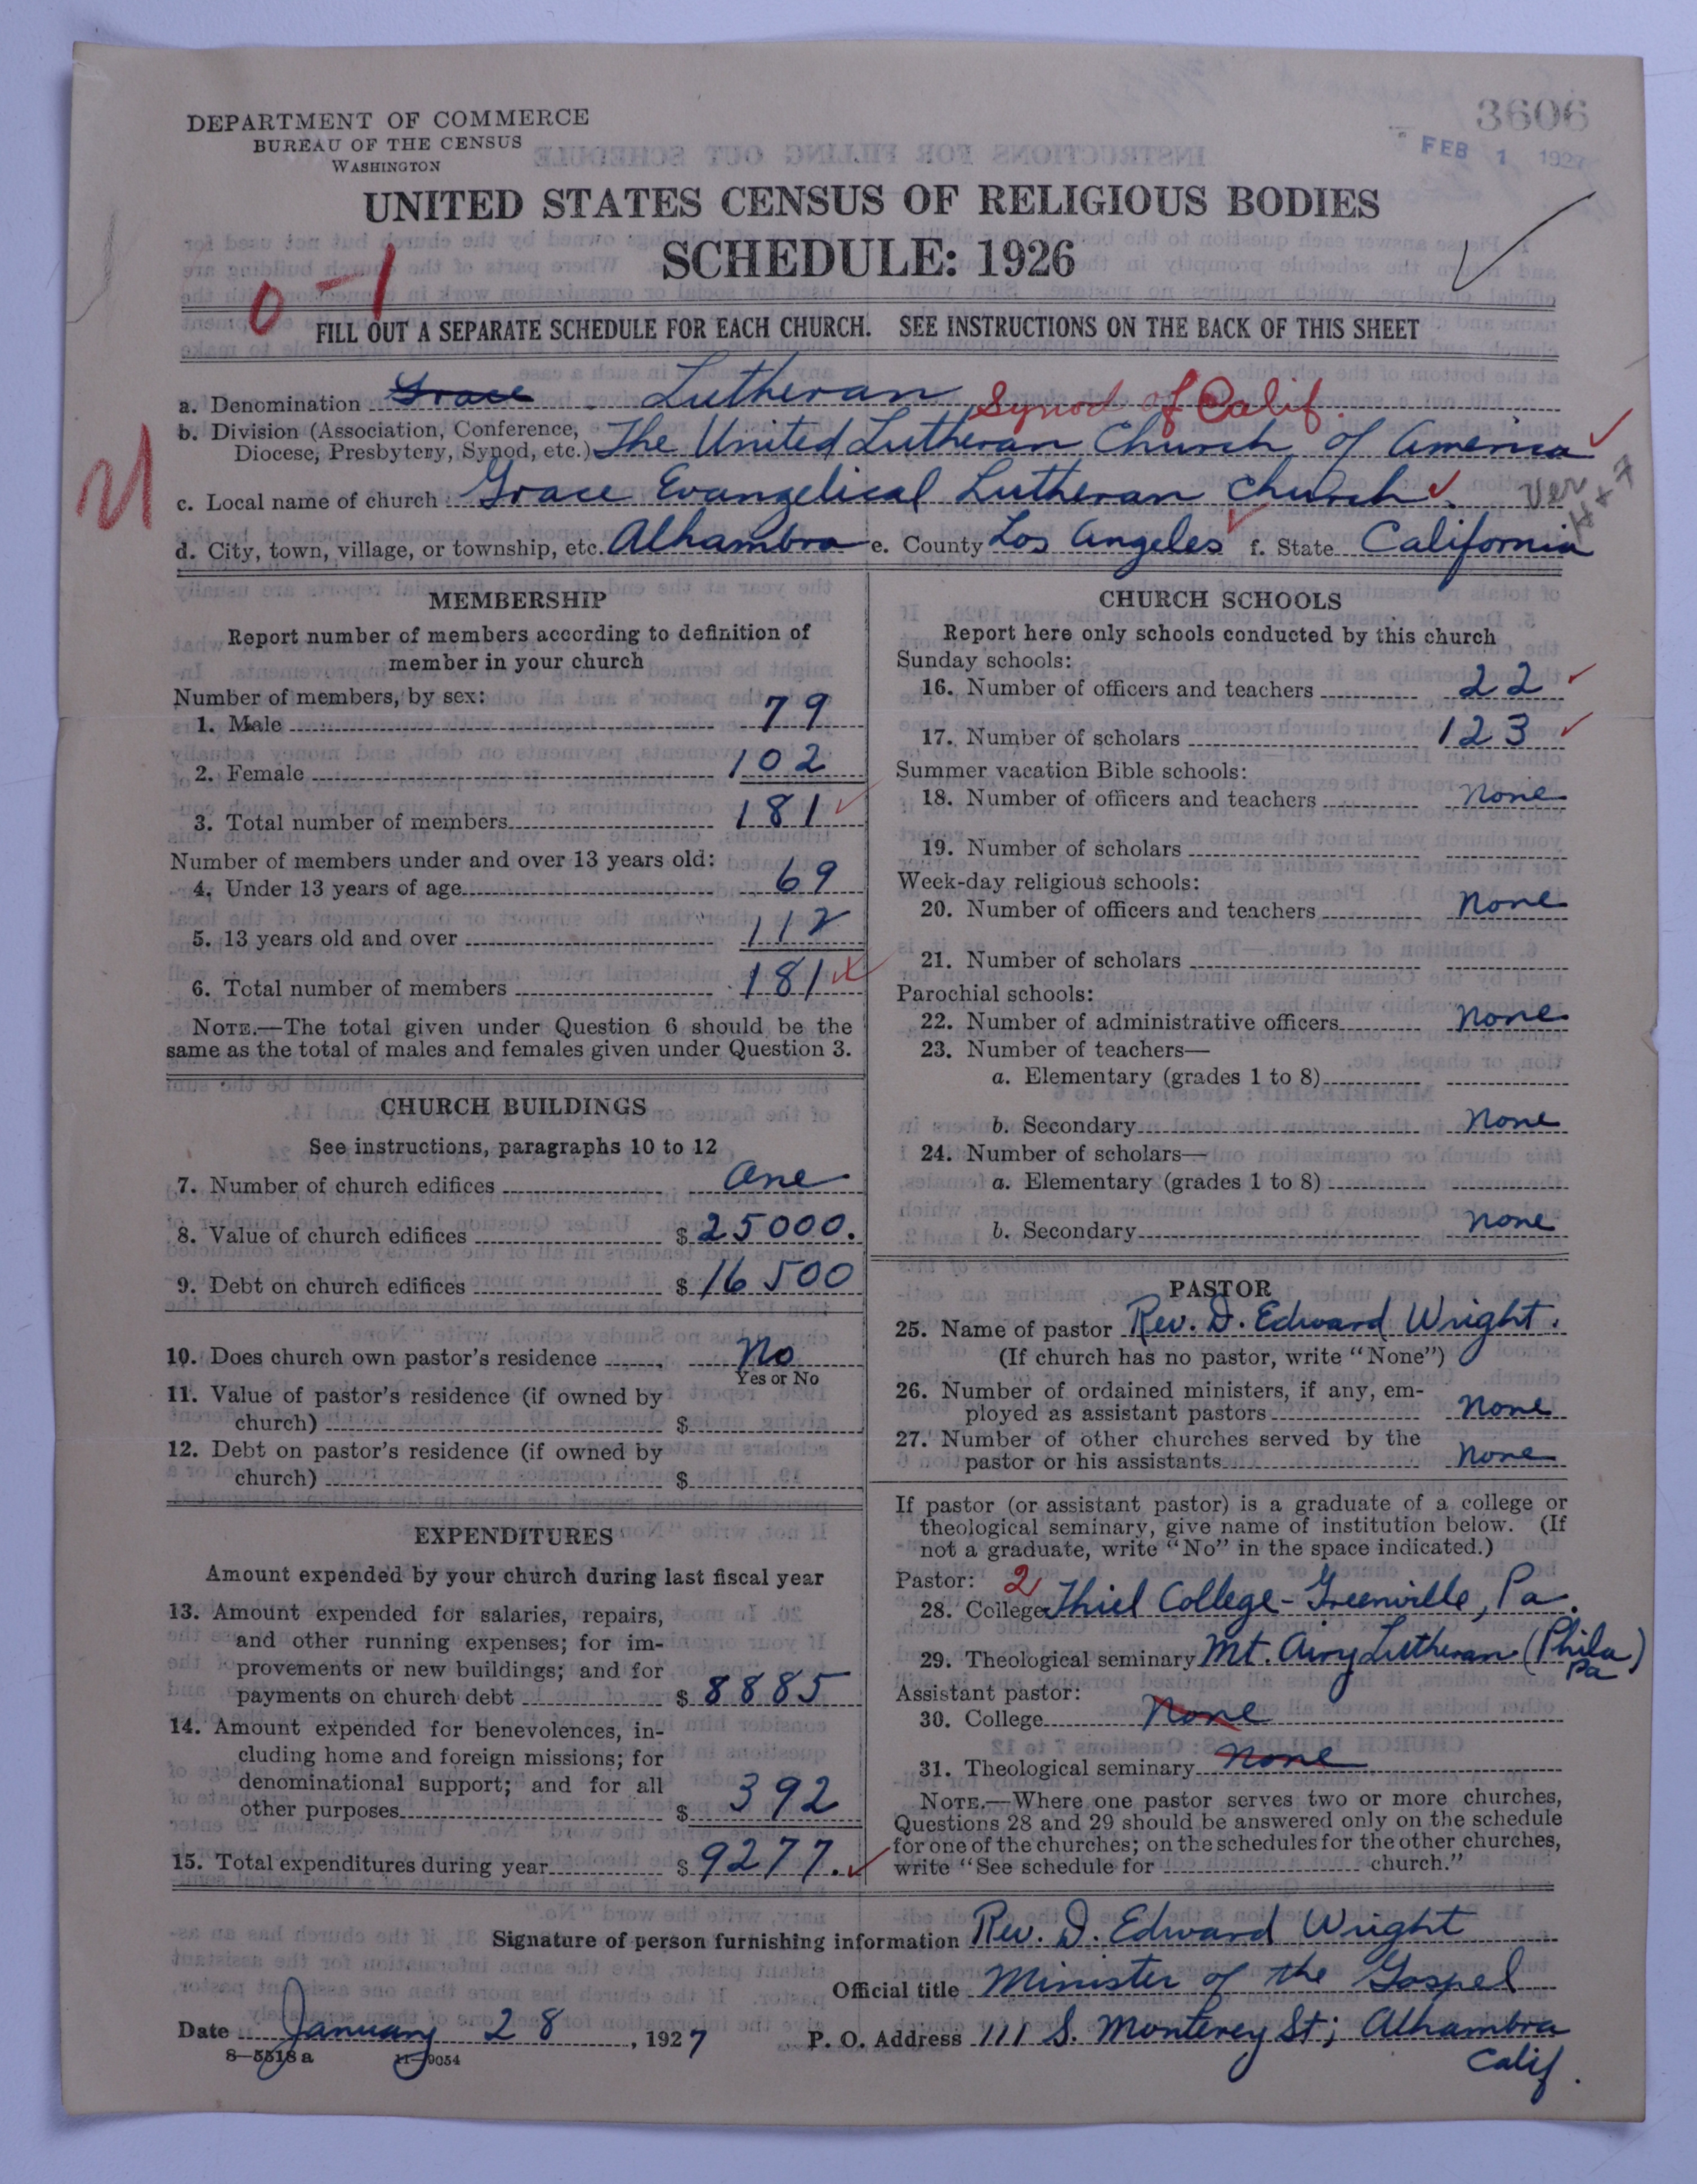 DEPARTMENT OF COMMERCE
BUREAU OF THE CENSUS
WASHINGTON
3606
FEB 1 1927
UNITED STATES CENSUS OF RELIGIOUS BODIES
SCHEDULE: 1926
0-1
FILL OUT A SEPARATE SCHEDULE FOR EACH CHURCH. SEE INSTRUCTIONS ON THE BACK OF THIS SHEET
a. Denomination Grace Lutheran Synod of Calif.
b. Division (Association, Conference, Diocese, Presbytery, Synod, etc.) The United Lutheran Church of America
c. Local name of church Grace Evangelical Lutheran Church.
d. City, town, village, or township, etc. Alhambra e. County Los Angeles f. State California
MEMBERSHIP
Report number of members according to definition of
member in your church
Number of members, by sex:
1. Male 79
2. Female 102
3. Total number of members 181
Number of members under and over 13 years old:
4. Under 13 years of age 69
5. 13 years old and over 112
6. Total number of members 181
NOTE.—The total given under Question 6 should be the
same as the total of males and females given under Question 3.
CHURCH BUILDINGS
See instructions, paragraphs 10 to 12
7. Number of church edifices One
8. Value of church edifices $ 25000.
9. Debt on church edifices $ 16500
10. Does church own pastor's residence No
Yes or No
11. Value of pastor's residence (if owned by
church) $
12. Debt on pastor's residence (if owned by
church) $
EXPENDITURES
Amount expended by your church during last fiscal year
13. Amount expended for salaries, repairs,
and other running expenses; for im-
provements or new buildings; and for
payments on church debt $ 8885
14. Amount expended for benevolences, in-
cluding home and foreign missions; for
denominational support; and for all
other purposes $ 392
15. Total expenditures during year $ 9277.
CHURCH SCHOOLS
Report here only schools conducted by this church
Sunday schools:
16. Number of officers and teachers 22
17. Number of scholars 123
Summer vacation Bible schools:
18. Number of officers and teachers None
19. Number of scholars
Week-day religious schools:
20. Number of officers and teachers None
21. Number of scholars
Parochial schools:
22. Number of administrative officers None
23. Number of teachers—
a. Elementary (grades 1 to 8)
b. Secondary None
24. Number of scholars—
a. Elementary (grades 1 to 8)
b. Secondary None
PASTOR
25. Name of pastor Rev. D. Edward Wright.
(If church has no pastor, write "None")
26. Number of ordained ministers, if any, em-
ployed as assistant pastors None
27. Number of other churches served by the
pastor or his assistants None
If pastor (or assistant pastor) is a graduate of a college or
theological seminary, give name of institution below. (If
not a graduate, write "No" in the space indicated.)
Pastor: 2
28. College Thiel College - Greenville, Pa.
29. Theological seminary Mt. Airy Lutheran (Phila Pa)
Assistant pastor:
30. College None
31. Theological seminary None
NOTE.—Where one pastor serves two or more churches,
Questions 28 and 29 should be answered only on the schedule
for one of the churches; on the schedules for the other churches,
write "See schedule for church."
Signature of person furnishing information Rev. D. Edward Wright
Official title Minister of the Gospel
Date January 28, 1927 P. O. Address 111 S. Monterey St; Alhambra
Calif.
8-5518a 11-9054